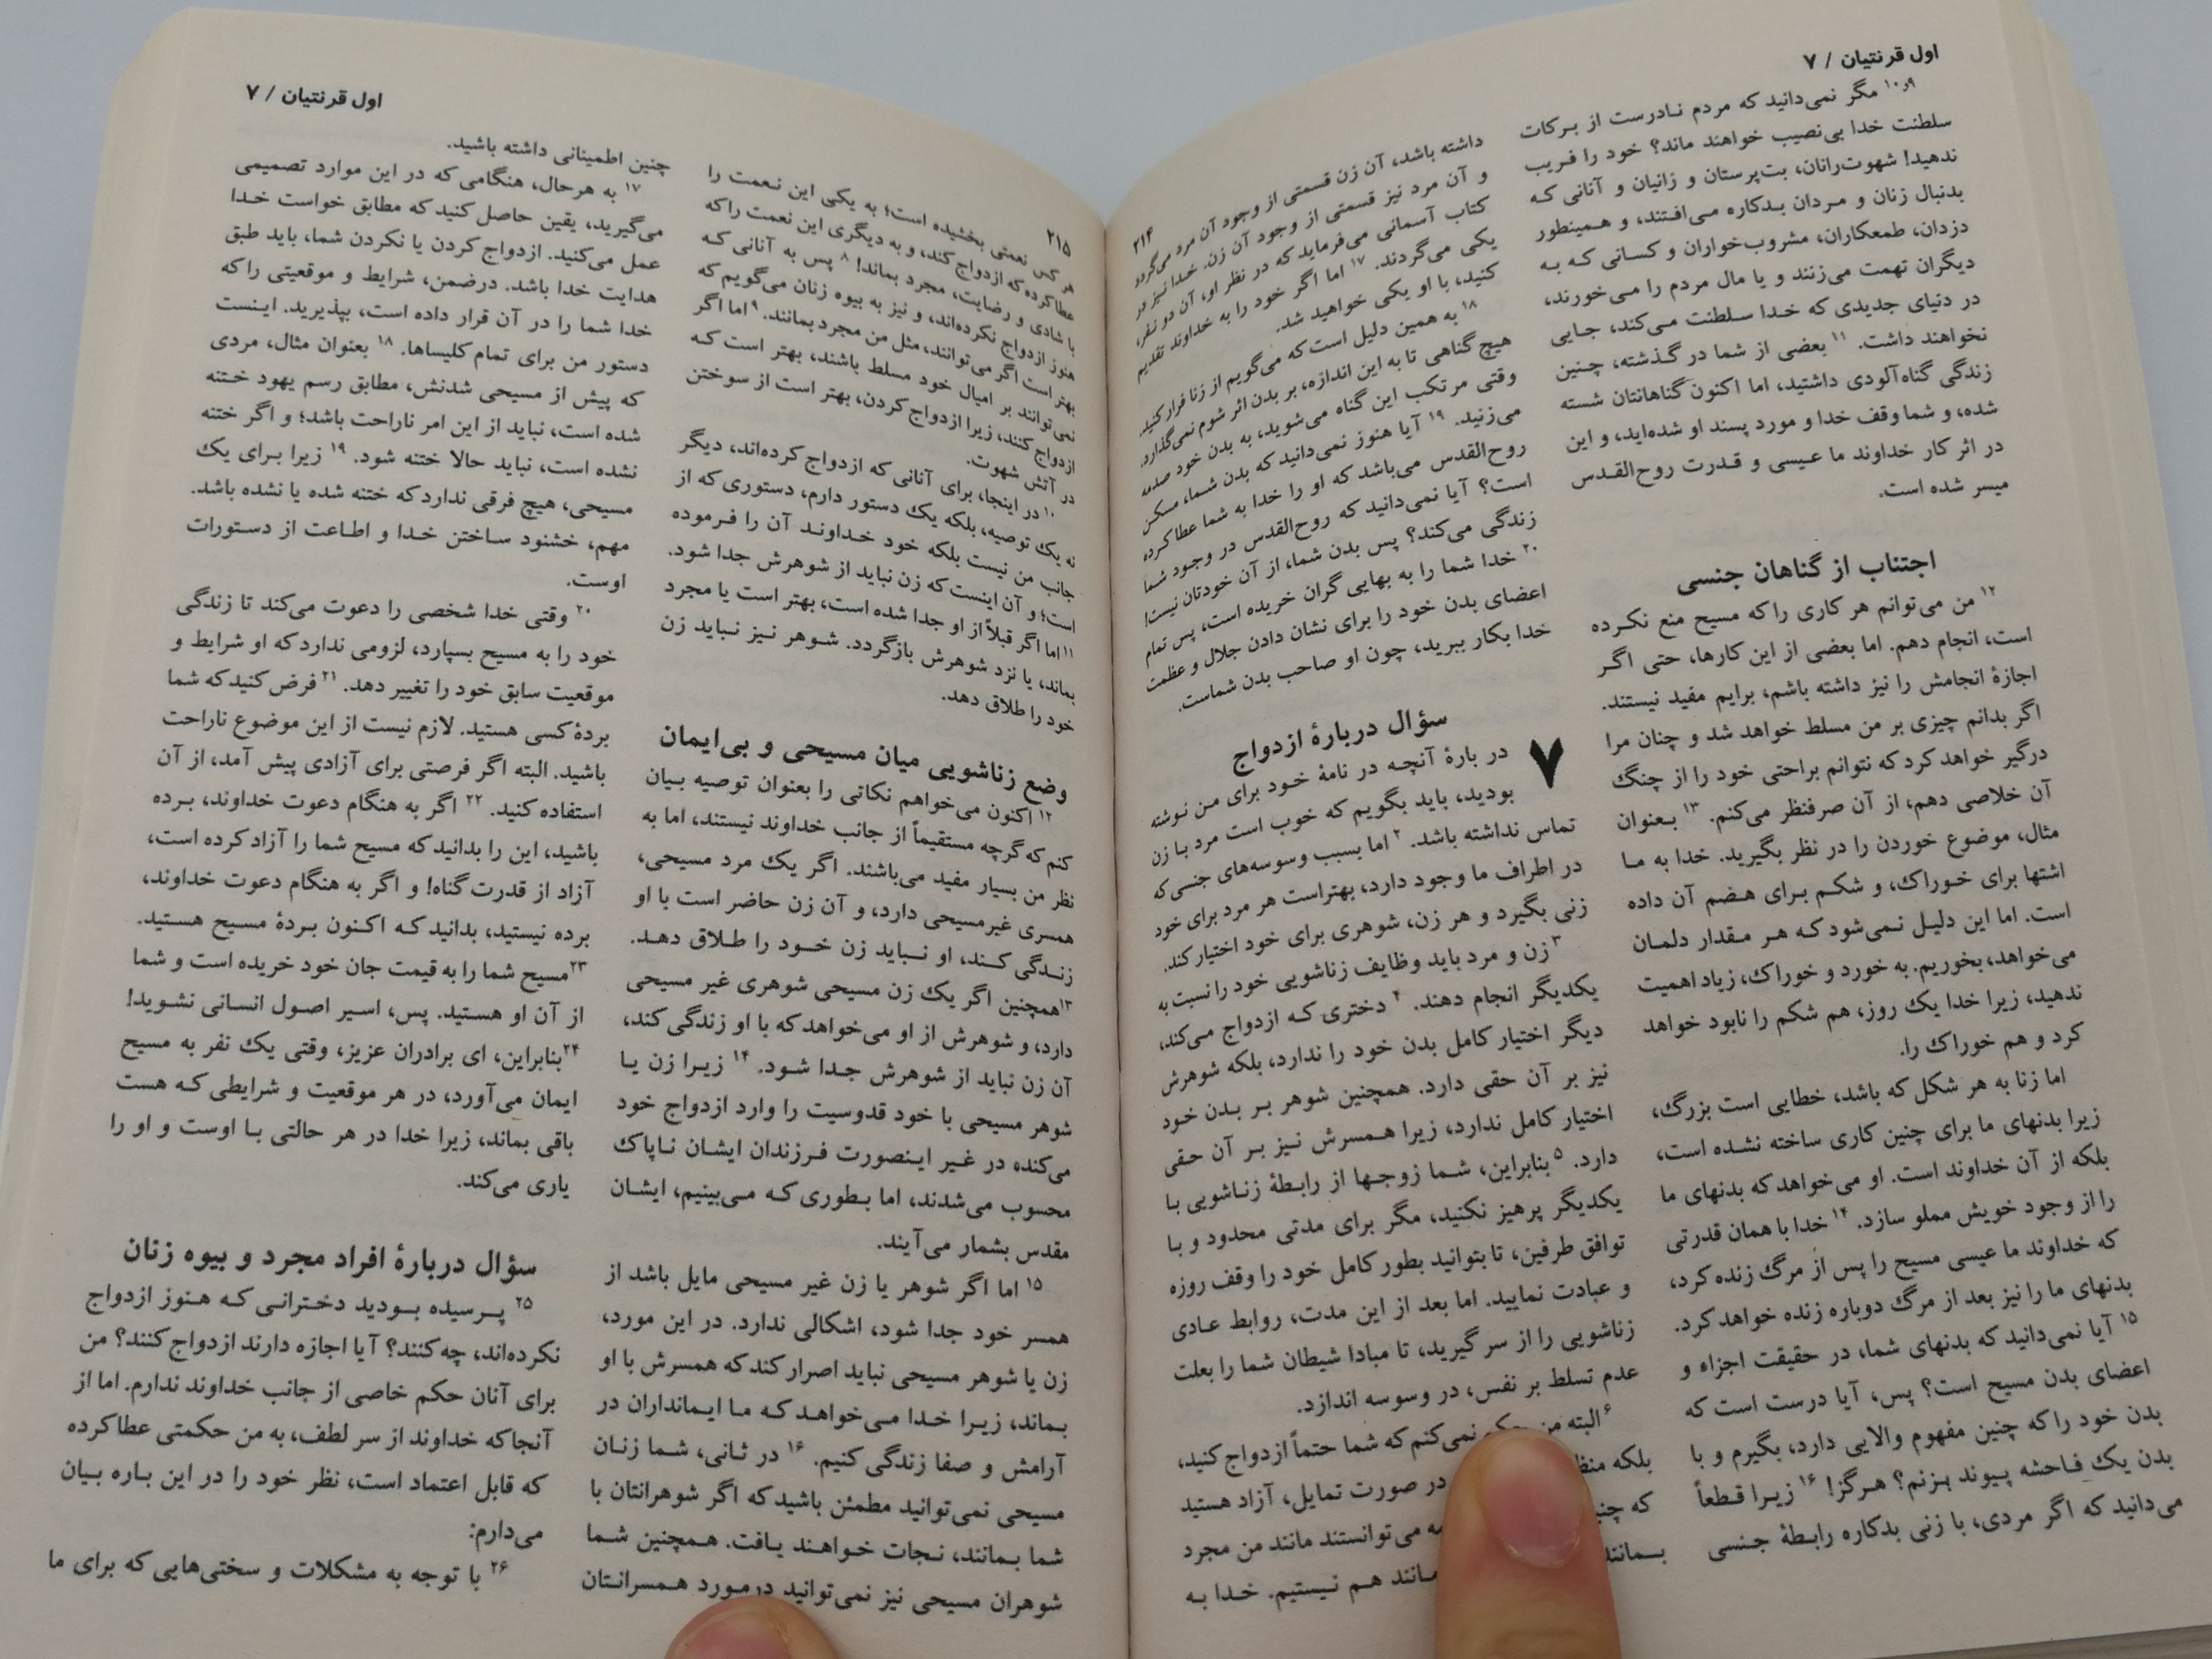 اول قرنتیان / ۷
۹و۱۰ مگر نمی‌دانید که مردم نادرست از برکات
سلطنت خدا بی‌نصیب خواهند ماند؟ خود را فریب
ندهید! شهوت‌رانان، بت‌پرستان و زانیان و آنانی که
بدنبال زنان و مردان بدکاره می‌افتند، و همینطور
دزدان، طمعکاران، مشروب‌خواران و کسانی که به
دیگران تهمت می‌زنند و یا مال مردم را می‌خورند،
در دنیای جدیدی که خدا سلطنت می‌کند، جایی
نخواهند داشت. ۱۱ بعضی از شما در گذشته، چنین
زندگی گناه‌آلودی داشتید، اما اکنون گناهانتان شسته
شده، و شما وقف خدا و مورد پسند او شده‌اید، و این
در اثر کار خداوند ما عیسی و قدرت روح‌القدس
میسر شده است.
اجتناب از گناهان جنسی
۱۲ من می‌توانم هر کاری را که مسیح منع نکرده
است، انجام دهم. اما بعضی از این کارها، حتی اگر
اجازهٔ انجامش را نیز داشته باشم، برایم مفید نیستند.
اگر بدانم چیزی بر من مسلط خواهد شد و چنان مرا
درگیر خواهد کرد که نتوانم براحتی خود را از چنگ
آن خلاصی دهم، از آن صرفنظر می‌کنم. ۱۳ بعنوان
مثال، موضوع خوردن را در نظر بگیرید. خدا به ما
اشتها برای خوراک، و شکم برای هضم آن داده
است. اما این دلیل نمی‌شود که هر مقدار دلمان
می‌خواهد، بخوریم. به خورد و خوراک، زیاد اهمیت
ندهید، زیرا خدا یک روز، هم شکم را نابود خواهد
کرد و هم خوراک را.
اما زنا به هر شکل که باشد، خطایی است بزرگ،
زیرا بدنهای ما برای چنین کاری ساخته نشده است،
بلکه از آن خداوند است. او می‌خواهد که بدنهای ما
را از وجود خویش مملو سازد. ۱۴ خدا با همان قدرتی
که خداوند ما عیسی مسیح را پس از مرگ زنده کرد،
بدنهای ما را نیز بعد از مرگ دوباره زنده خواهد کرد.
۱۵ آیا نمی‌دانید که بدنهای شما، در حقیقت اجزاء و
اعضای بدن مسیح است؟ پس، آیا درست است که
بدن خود را که چنین مفهوم والایی دارد، بگیرم و با
بدن یک فاحشه پیوند بزنم؟ هرگز! ۱۶ زیرا قطعاً
می‌دانید که اگر مردی، با زنی بدکاره رابطهٔ جنسی
۲۱۴
داشته باشد، آن زن قسمتی از وجود آن مرد می‌گردد
و آن مرد نیز قسمتی از وجود آن زن. خدا نیز در
کتاب آسمانی می‌فرماید که در نظر او، آن دو نفر،
یکی می‌گردند. ۱۷ اما اگر خود را به خداوند تقدیم
کنید، با او یکی خواهید شد.
۱۸ به همین دلیل است که می‌گویم از زنا فرار کنید.
هیچ گناهی تا به این اندازه، بر بدن اثر شوم نمی‌گذارد.
وقتی مرتکب این گناه می‌شوید، به بدن خود صدمه
می‌زنید. ۱۹ آیا هنوز نمی‌دانید که بدن شما، مسکن
روح‌القدس می‌باشد که او را خدا به شما عطا کرده
است؟ آیا نمی‌دانید که روح‌القدس در وجود شما
زندگی می‌کند؟ پس بدن شما، از آن خودتان نیست!
۲۰ خدا شما را به بهایی گران خریده است، پس تمام
اعضای بدن خود را برای نشان دادن جلال و عظمت
خدا بکار ببرید، چون او صاحب بدن شماست.
سؤال دربارهٔ ازدواج
۷ در بارهٔ آنچه در نامهٔ خود برای من نوشته
بودید، باید بگویم که خوب است مرد با زن
تماس نداشته باشد. ۲ اما بسبب وسوسه‌های جنسی که
در اطراف ما وجود دارد، بهتراست هر مرد برای خود
زنی بگیرد و هر زن، شوهری برای خود اختیار کند.
۳ زن و مرد باید وظایف زناشویی خود را نسبت به
یکدیگر انجام دهند. ۴ دختری که ازدواج می‌کند،
دیگر اختیار کامل بدن خود را ندارد، بلکه شوهرش
نیز بر آن حقی دارد. همچنین شوهر بر بدن خود
اختیار کامل ندارد، زیرا همسرش نیز بر آن حقی
دارد. ۵ بنابراین، شما زوجها از رابطهٔ زناشویی با
یکدیگر پرهیز نکنید، مگر برای مدتی محدود و با
توافق طرفین، تا بتوانید بطور کامل خود را وقف روزه
و عبادت نمایید. اما بعد از این مدت، روابط عادی
زناشویی را از سر گیرید، تا مبادا شیطان شما را بعلت
عدم تسلط بر نفس، در وسوسه اندازد.
۶ البته من حکم نمی‌کنم که شما حتماً ازدواج کنید،
بلکه در صورت تمایل، آزاد هستید
که می‌توانستند مانند من مجرد
هم نیستیم. خدا به
۲۱۵
هر کس نعمتی بخشیده است؛ به یکی این نعمت را
عطا کرده که ازدواج کند، و به دیگری این نعمت را که
با شادی و رضایت، مجرد بماند! ۸ پس به آنانی که
هنوز ازدواج نکرده‌اند، و نیز به بیوه زنان می‌گویم که
بهتر است اگر می‌توانند، مثل من مجرد بمانند. ۹ اما اگر
نمی‌توانند بر امیال خود مسلط باشند، بهتر است که
ازدواج کنند، زیرا ازدواج کردن، بهتر است از سوختن
در آتش شهوت.
۱۰ در اینجا، برای آنانی که ازدواج کرده‌اند، دیگر
نه یک توصیه، بلکه یک دستور دارم، دستوری که از
جانب من نیست بلکه خود خداوند آن را فرموده
است؛ و آن اینست که زن نباید از شوهرش جدا شود.
۱۱ اما اگر قبلاً از او جدا شده است، بهتر است یا مجرد
بماند، یا نزد شوهرش بازگردد. شوهر نیز نباید زن
خود را طلاق دهد.
وضع زناشویی میان مسیحی و بی‌ایمان
۱۲ اکنون می‌خواهم نکاتی را بعنوان توصیه بیان
کنم که گرچه مستقیماً از جانب خداوند نیستند، اما به
نظر من بسیار مفید می‌باشند. اگر یک مرد مسیحی،
همسری غیرمسیحی دارد، و آن زن حاضر است با او
زندگی کند، او نباید زن خود را طلاق دهد.
۱۳ همچنین اگر یک زن مسیحی شوهری غیر مسیحی
دارد، و شوهرش از او می‌خواهد که با او زندگی کند،
آن زن نباید از شوهرش جدا شود. ۱۴ زیرا زن یا
شوهر مسیحی با خود قدوسیت را وارد ازدواج خود
می‌کنده در غیر اینصورت فرزندان ایشان ناپاک
محسوب می‌شدند، اما بطوری که می‌بینیم، ایشان
مقدس بشمار می‌آیند.
۱۵ اما اگر شوهر یا زن غیر مسیحی مایل باشد از
همسر خود جدا شود، اشکالی ندارد. در این مورد،
زن یا شوهر مسیحی نباید اصرار کند که همسرش با او
بماند، زیرا خدا می‌خواهد که ما ایمانداران در
آرامش و صفا زندگی کنیم. ۱۶ در ثانی، شما زنان
مسیحی نمی‌توانید مطمئن باشید که اگر شوهرانتان با
شما بمانند، نجات خواهند یافت. همچنین شما
شوهران مسیحی نیز نمی‌توانید درمورد همسرانتان
اول قرنتیان / ۷
چنین اطمینانی داشته باشید.
۱۷ به هرحال، هنگامی که در این موارد تصمیمی
می‌گیرید، یقین حاصل کنید که مطابق خواست خدا
عمل می‌کنید. ازدواج کردن یا نکردن شما، باید طبق
هدایت خدا باشد. درضمن، شرایط و موقعیتی را که
خدا شما را در آن قرار داده است، بپذیرید. اینست
دستور من برای تمام کلیساها. ۱۸ بعنوان مثال، مردی
که پیش از مسیحی شدنش، مطابق رسم یهود ختنه
شده است، نباید از این امر ناراحت باشد؛ و اگر ختنه
نشده است، نباید حالا ختنه شود. ۱۹ زیرا برای یک
مسیحی، هیچ فرقی ندارد که ختنه شده یا نشده باشد.
مهم، خشنود ساختن خدا و اطاعت از دستورات
اوست.
۲۰ وقتی خدا شخصی را دعوت می‌کند تا زندگی
خود را به مسیح بسپارد، لزومی ندارد که او شرایط و
موقعیت سابق خود را تغییر دهد. ۲۱ فرض کنید که شما
بردهٔ کسی هستید. لازم نیست از این موضوع ناراحت
باشید. البته اگر فرصتی برای آزادی پیش آمد، از آن
استفاده کنید. ۲۲ اگر به هنگام دعوت خداوند، برده
باشید، این را بدانید که مسیح شما را آزاد کرده است،
آزاد از قدرت گناه! و اگر به هنگام دعوت خداوند،
برده نیستید، بدانید که اکنون بردهٔ مسیح هستید.
۲۳ مسیح شما را به قیمت جان خود خریده است و شما
از آن او هستید. پس، اسیر اصول انسانی نشوید!
۲۴ بنابراین، ای برادران عزیز، وقتی یک نفر به مسیح
ایمان می‌آورد، در هر موقعیت و شرایطی که هست
باقی بماند، زیرا خدا در هر حالتی با اوست و او را
یاری می‌کند.
سؤال دربارهٔ افراد مجرد و بیوه زنان
۲۵ پرسیده بودید دخترانی که هنوز ازدواج
نکرده‌اند، چه کنند؟ آیا اجازه دارند ازدواج کنند؟ من
برای آنان حکم خاصی از جانب خداوند ندارم. اما از
آنجا که خداوند از سر لطف، به من حکمتی عطا کرده
که قابل اعتماد است، نظر خود را در این باره بیان
می‌دارم:
۲۶ با توجه به مشکلات و سختی‌هایی که برای ما